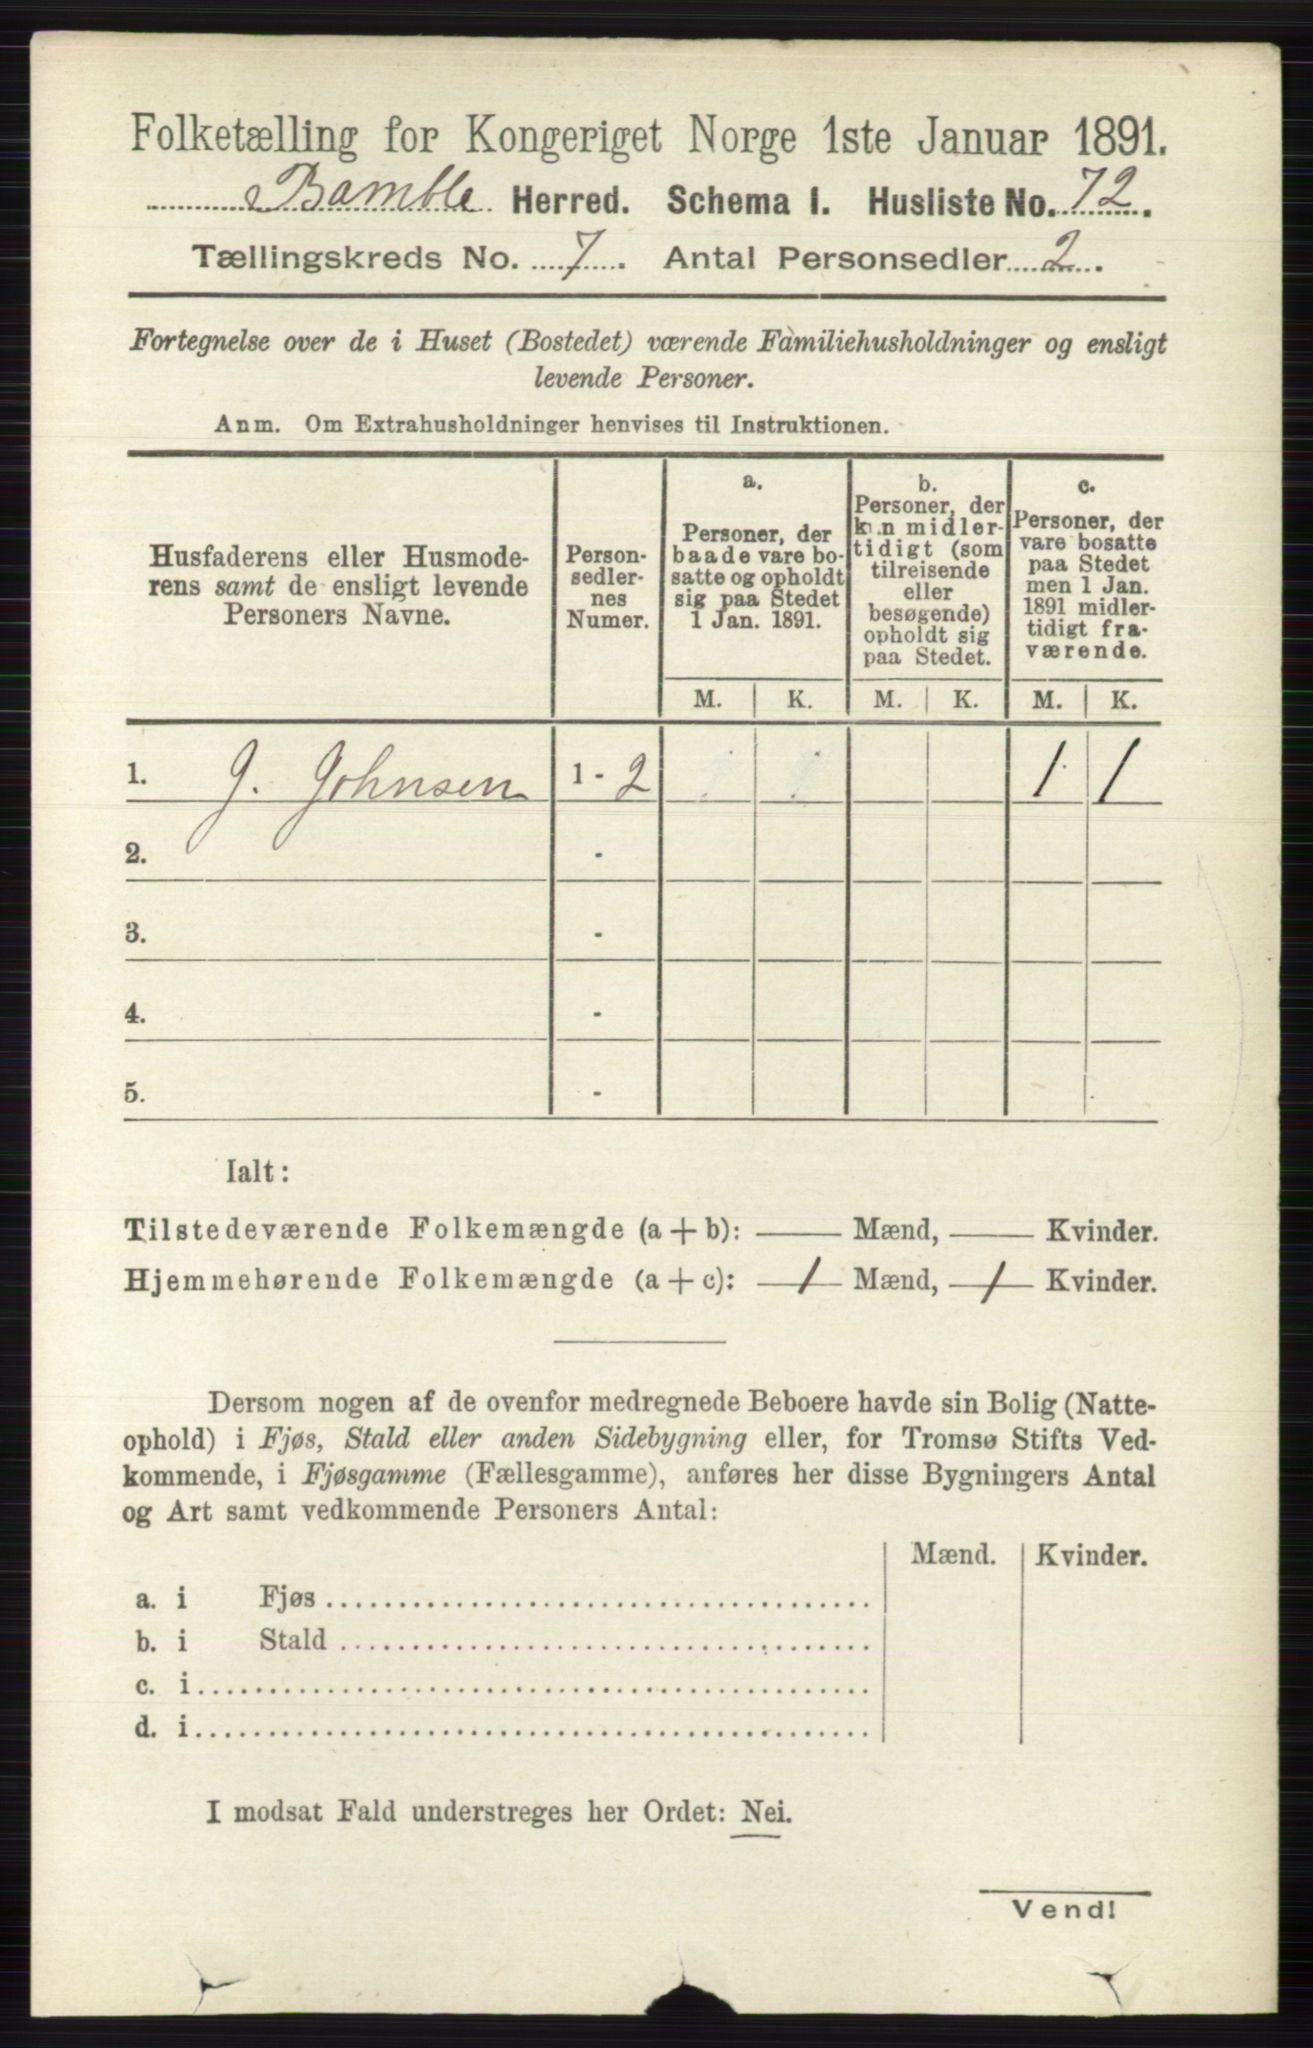 Folketælling for Kongeriget Norge 1ste Januar 1891.
Bamble Herred. Schema I. Husliste No. 72.
Tællingskreds No. 7. Antal Personsedler 2.
Fortegnelse over de i Huset (Bostedet) værende Familiehusholdninger og ensligt
levende Personer.
Anm. Om Extrahusholdninger henvises til Instruktionen.
Husfaderens eller Husmode-
rens samt de ensligt levende
Personers Navne.
Person-
sedler-
nes
Numer.
a.
Personer, der
baade vare bo-
satte og opholdt
sig paa Stedet
1 Jan. 1891.
b.
Personer, der
kun midler-
tidigt (som
tilreisende
eller
besøgende)
opholdt sig
paa Stedet.
c.
Personer, der
vare bosatte
paa Stedet
men 1 Jan.
1891 midler-
tidigt fra-
værende.
M. K. M. K. M. K.
1. G. Johnsen 1 - 2 1 1
2. -
3. -
4. -
5. -
Ialt:
Tilstedeværende Folkemængde (a + b): — Mænd, — Kvinder.
Hjemmehørende Folkemængde (a + c): 1 Mænd, 1 Kvinder.
Dersom nogen af de ovenfor medregnede Beboere havde sin Bolig (Natte-
ophold) i Fjøs, Stald eller anden Sidebygning eller, for Tromsø Stifts Ved-
kommende, i Fjøsgamme (Fællesgamme), anføres her disse Bygningers Antal
og Art samt vedkommende Personers Antal:
Mænd. Kvinder.
a. i Fjøs
b. i Stald
c. i
d. i
I modsat Fald understreges her Ordet: Nei.
Vend!